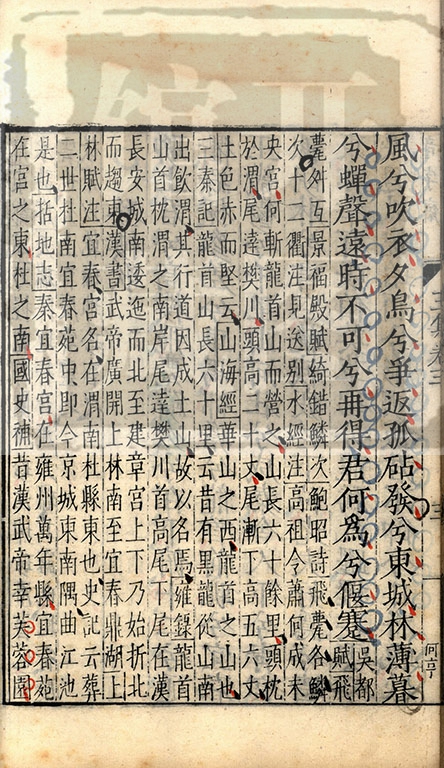 風兮吹衣夕鳥兮爭返孤砧發兮東城林薄暮
兮蟬聲遠時不可兮再得君何為兮偃蹇吳都賦飛
甍舛互景福殿賦綺錯鱗次鮑昭詩飛甍各鱗
次十二衢注見送別水經注高祖令蕭何成未
央宮何斬龍首山而營之山長六十餘里頭枕
於渭尾達樊川頭高二十丈尾漸下高五六丈
土色赤而堅云山海經華山之西龍首之山也
三秦記龍首山長六十里云昔有黑龍從山南
出飲渭其行道因成土山故以名焉雍錄龍首
山首枕渭之南岸尾達樊川首高尾下尾在漢
長安城南逶迤而北至建章宮上下乃始折北
而趨東漢書武帝廣開上林南至宜春鼎湖上
林賦注宜春宮名在渭南杜縣東也史記云葬
二世杜南宜春苑中即今京城東南隅曲江池
是也括地志秦宜春宮在雍州萬年縣宜春苑
在宮之東杜之南國史補昔漢武帝幸芙蓉園